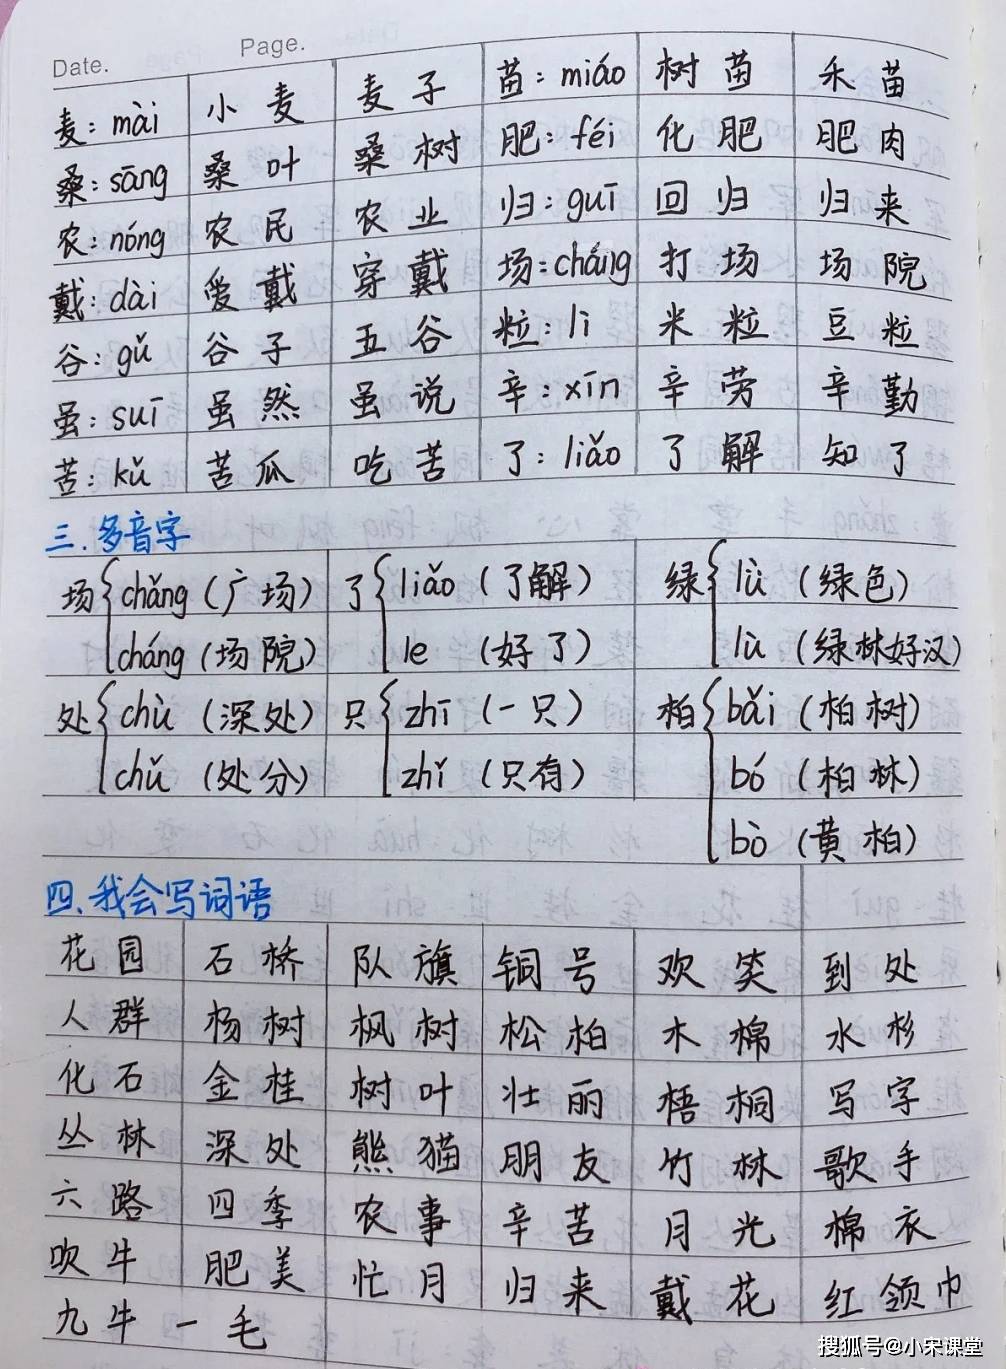 Date. Page.
麦：mài 小麦 麦子 苗：miáo 树苗 禾苗
桑：sāng 桑叶 桑树 肥：féi 化肥 肥肉
农：nóng 农民 农业 归：guī 回归 归来
戴：dài 爱戴 穿戴 场：cháng 打场 场院
谷：gǔ 谷子 五谷 粒：lì 米粒 豆粒
虽：suī 虽然 虽说 辛：xīn 辛劳 辛勤
苦：kǔ 苦瓜 吃苦 了：liǎo 了解 知了
三.多音字
场{chǎng（广场） 了{liǎo（了解） 绿{lǜ（绿色）
cháng（场院） le（好了） lù（绿林好汉）
处{chù（深处） 只{zhī（一只） 柏{bǎi（柏树）
chǔ（处分） zhǐ（只有） bó（柏林）
bò（黄柏）
四.我会写词语
花园 石桥 队旗 铜号 欢笑 到处
人群 杨树 枫树 松柏 木棉 水杉
化石 金桂 树叶 壮丽 梧桐 写字
丛林 深处 熊猫 朋友 竹林 歌手
六路 四季 农事 辛苦 月光 棉衣
吹牛 肥美 忙月 归来 戴花 红领巾
九牛一毛
搜狐号@小宋课堂